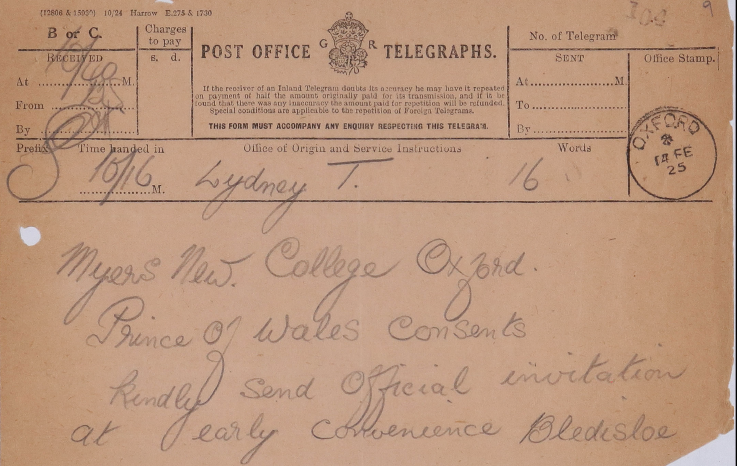 (12806 & 15030) 10/24 Harrow E.275 & 1730
B or C.
Charges to pay
s. d.
POST OFFICE G R TELEGRAPHS.
If the receiver of an Inland Telegram doubts its accuracy he may have it repeated
on payment of half the amount originally paid for its transmission, and if it be
found that there was any inaccuracy the amount paid for repetition will be refunded.
Special conditions are applicable to the repetition of Foreign Telegrams.
THIS FORM MUST ACCOMPANY ANY ENQUIRY RESPECTING THIS TELEGRAM.
No. of Telegram
RECEIVED
At M.
From
By
SENT
At M.
To
By
Office Stamp.
OXFORD
14 FE
25
Prefix Time handed in Office of Origin and Service Instructions Words
10/16 M. Lydney T. 16
Myers New. College Oxford.
Prince Of Wales Consents
kindly send Official invitation
at early Convenience Bledisloe